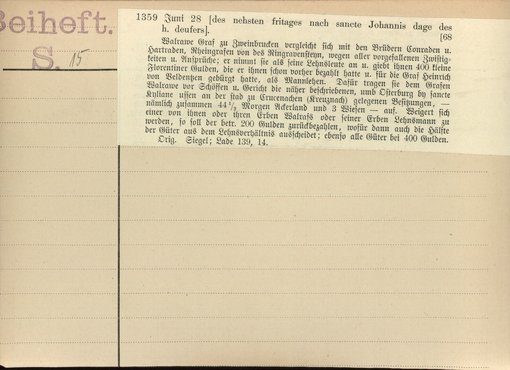 Beiheft.
S. 15
1359 Juni 28 [des nehsten fritages nach sancte Johannis dage des
h. deufers].
[68
Walrawe Graf zu Zweinbrucken vergleicht sich mit den Brüdern Conraden u.
Hartraden, Rheingrafen von des Ringravensteyn, wegen aller vorgefallenen Zwistig-
keiten u. Ansprüche; er nimmt sie als seine Lehnsleute an u. giebt ihnen 400 kleine
Florentiner Gulden, die er ihnen schon vorher bezahlt hatte u. für die Graf Heinrich
von Veldentzen gebürgt hatte, als Mannlehen. Dafür tragen sie dem Grafen
Walrawe vor Schöffen u. Gericht die näher beschriebenen, umb Osterburg by sancte
Kyliane ussen an der stad zu Crucenachen (Kreuznach) gelegenen Besitzungen, —
nämlich zusammen 44 1/2 Morgen Ackerland und 3 Wiesen — auf. Weigert sich
einer von ihnen oder ihren Erben Walrafs oder seiner Erben Lehnsmann zu
werden, so soll der betr. 200 Gulden zurückbezahlen, wofür dann auch die Hälfte
der Güter aus dem Lehnsverhältnis ausscheidet; ebenso alle Güter bei 400 Gulden.
Orig. Siegel; Lade 139, 14.